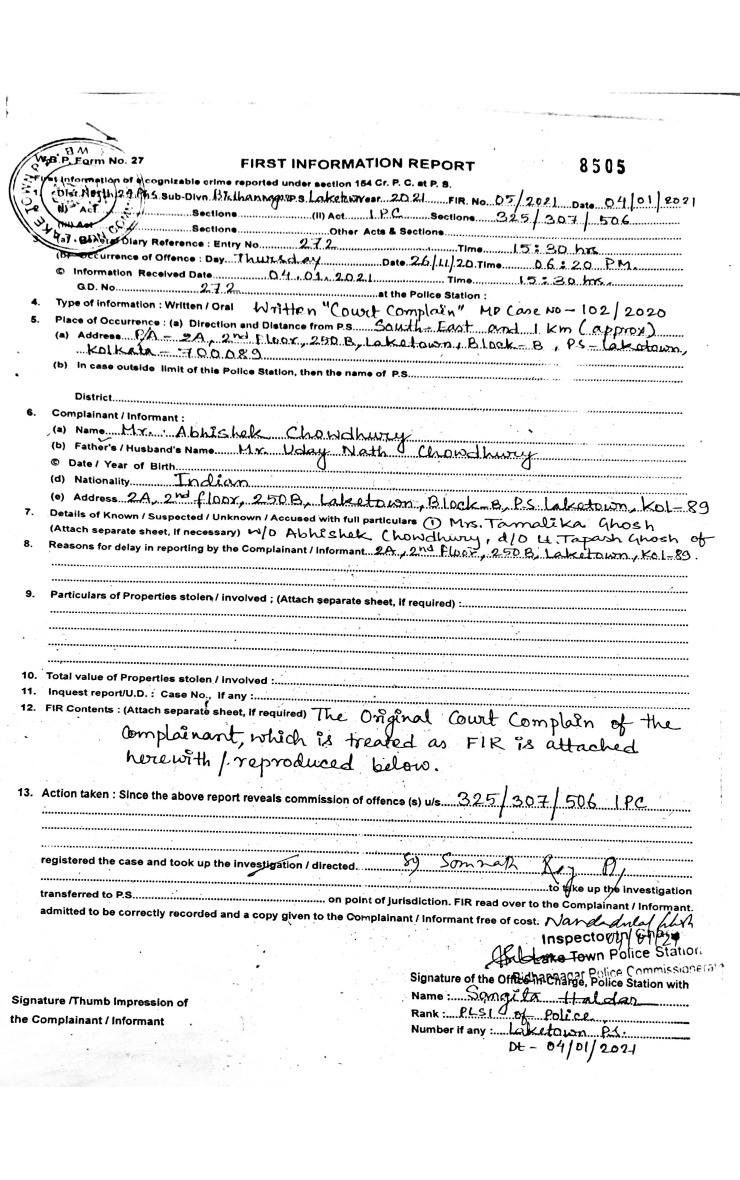 W.B.P. Form No. 27
FIRST INFORMATION REPORT 8505
First Information of a cognizable crime reported under section 154 Cr. P. C. at P. S.
1. Dist. North 24 Pns Sub-Divn. Bidhannagar P.S. Laketown Year 2021 FIR. No. 05/2021 Date 04/01/2021
Act Sections (II) Act I.P.C Sections 325/307/506
(iii) Act Sections Other Acts & Sections
Diary Reference : Entry No 272 Time 15:30 hrs
(b) Occurrence of Offence : Day Thursday Date 26/11/20 Time 06:20 PM.
© Information Received Date 04.01.2021 Time 15:30 hrs.
G.D. No. 272 at the Police Station :
4. Type of information : Written / Oral Written "Court Complain" MP Case No - 102/2020
5. Place of Occurrence : (a) Direction and Distance from P.S. South-East and 1 Km (approx)
(a) Address P/A - 2A, 2nd Floor, 250 B, Laketown, Block-B, PS-Laketown,
Kolkata - 700089
(b) In case outside limit of this Police Station, then the name of P.S.
District
6. Complainant / Informant :
(a) Name Mr. Abhishek Chowdhury
(b) Father's / Husband's Name Mr. Uday Nath Chowdhury
© Date / Year of Birth
(d) Nationality Indian
(e) Address 2A, 2nd floor, 250B, Laketown, Block-B, P.S. Laketown, Kol-89
7. Details of Known / Suspected / Unknown / Accused with full particulars ① Mrs. Tamalika Ghosh
(Attach separate sheet, if necessary) w/o Abhishek Chowdhury, d/o Lt. Tapash Ghosh of
8. Reasons for delay in reporting by the Complainant / Informant 2A, 2nd Floor, 250B, Laketown, Kol-89.
9. Particulars of Properties stolen / involved ; (Attach separate sheet, if required) :
10. Total value of Properties stolen / involved :
11. Inquest report/U.D. : Case No., if any :
12. FIR Contents : (Attach separate sheet, if required) The Original Court Complain of the
Complainant, which is treated as FIR is attached
herewith / reproduced below.
13. Action taken : Since the above report reveals commission of offence (s) u/s 325/307/506 IPC
registered the case and took up the investigation / directed. SI Somnath Roy
to take up the investigation
transferred to P.S. on point of jurisdiction. FIR read over to the Complainant / Informant.
admitted to be correctly recorded and a copy given to the Complainant / Informant free of cost. Nandadulal Ghosh
Lake Town Police Station
Bidhannagar Police Commissionerate
Signature of the Officer-in-Charge, Police Station with
Name : Sangita Haldar
Signature /Thumb Impression of
Rank : PLSI of Police
the Complainant / Informant
Number if any : Laketown P.S.
Dt - 04/01/2021